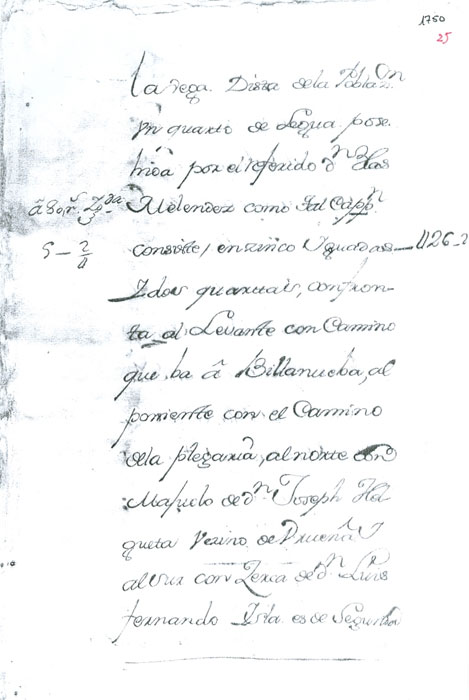 1750
25
la vega. Dista dela Poblaz.on
Vn quarto de Legua, pose
hida por el referido d.n Blas
â 3. or.
Melendez como tal Capp.n
5 - 2/4
consiste, en zinco Yguadas — 1126-2
Y dos quartales, confron-
ta al Levante con Camino
que ba â Billanueba, al
poniente con el Camino
dela plegaria, al norte con
Majuelo de d.n Joseph Hol
gueta Vezino de
al Sur con Zerca de d.n Luis
fernando Ysla. es de Segunda